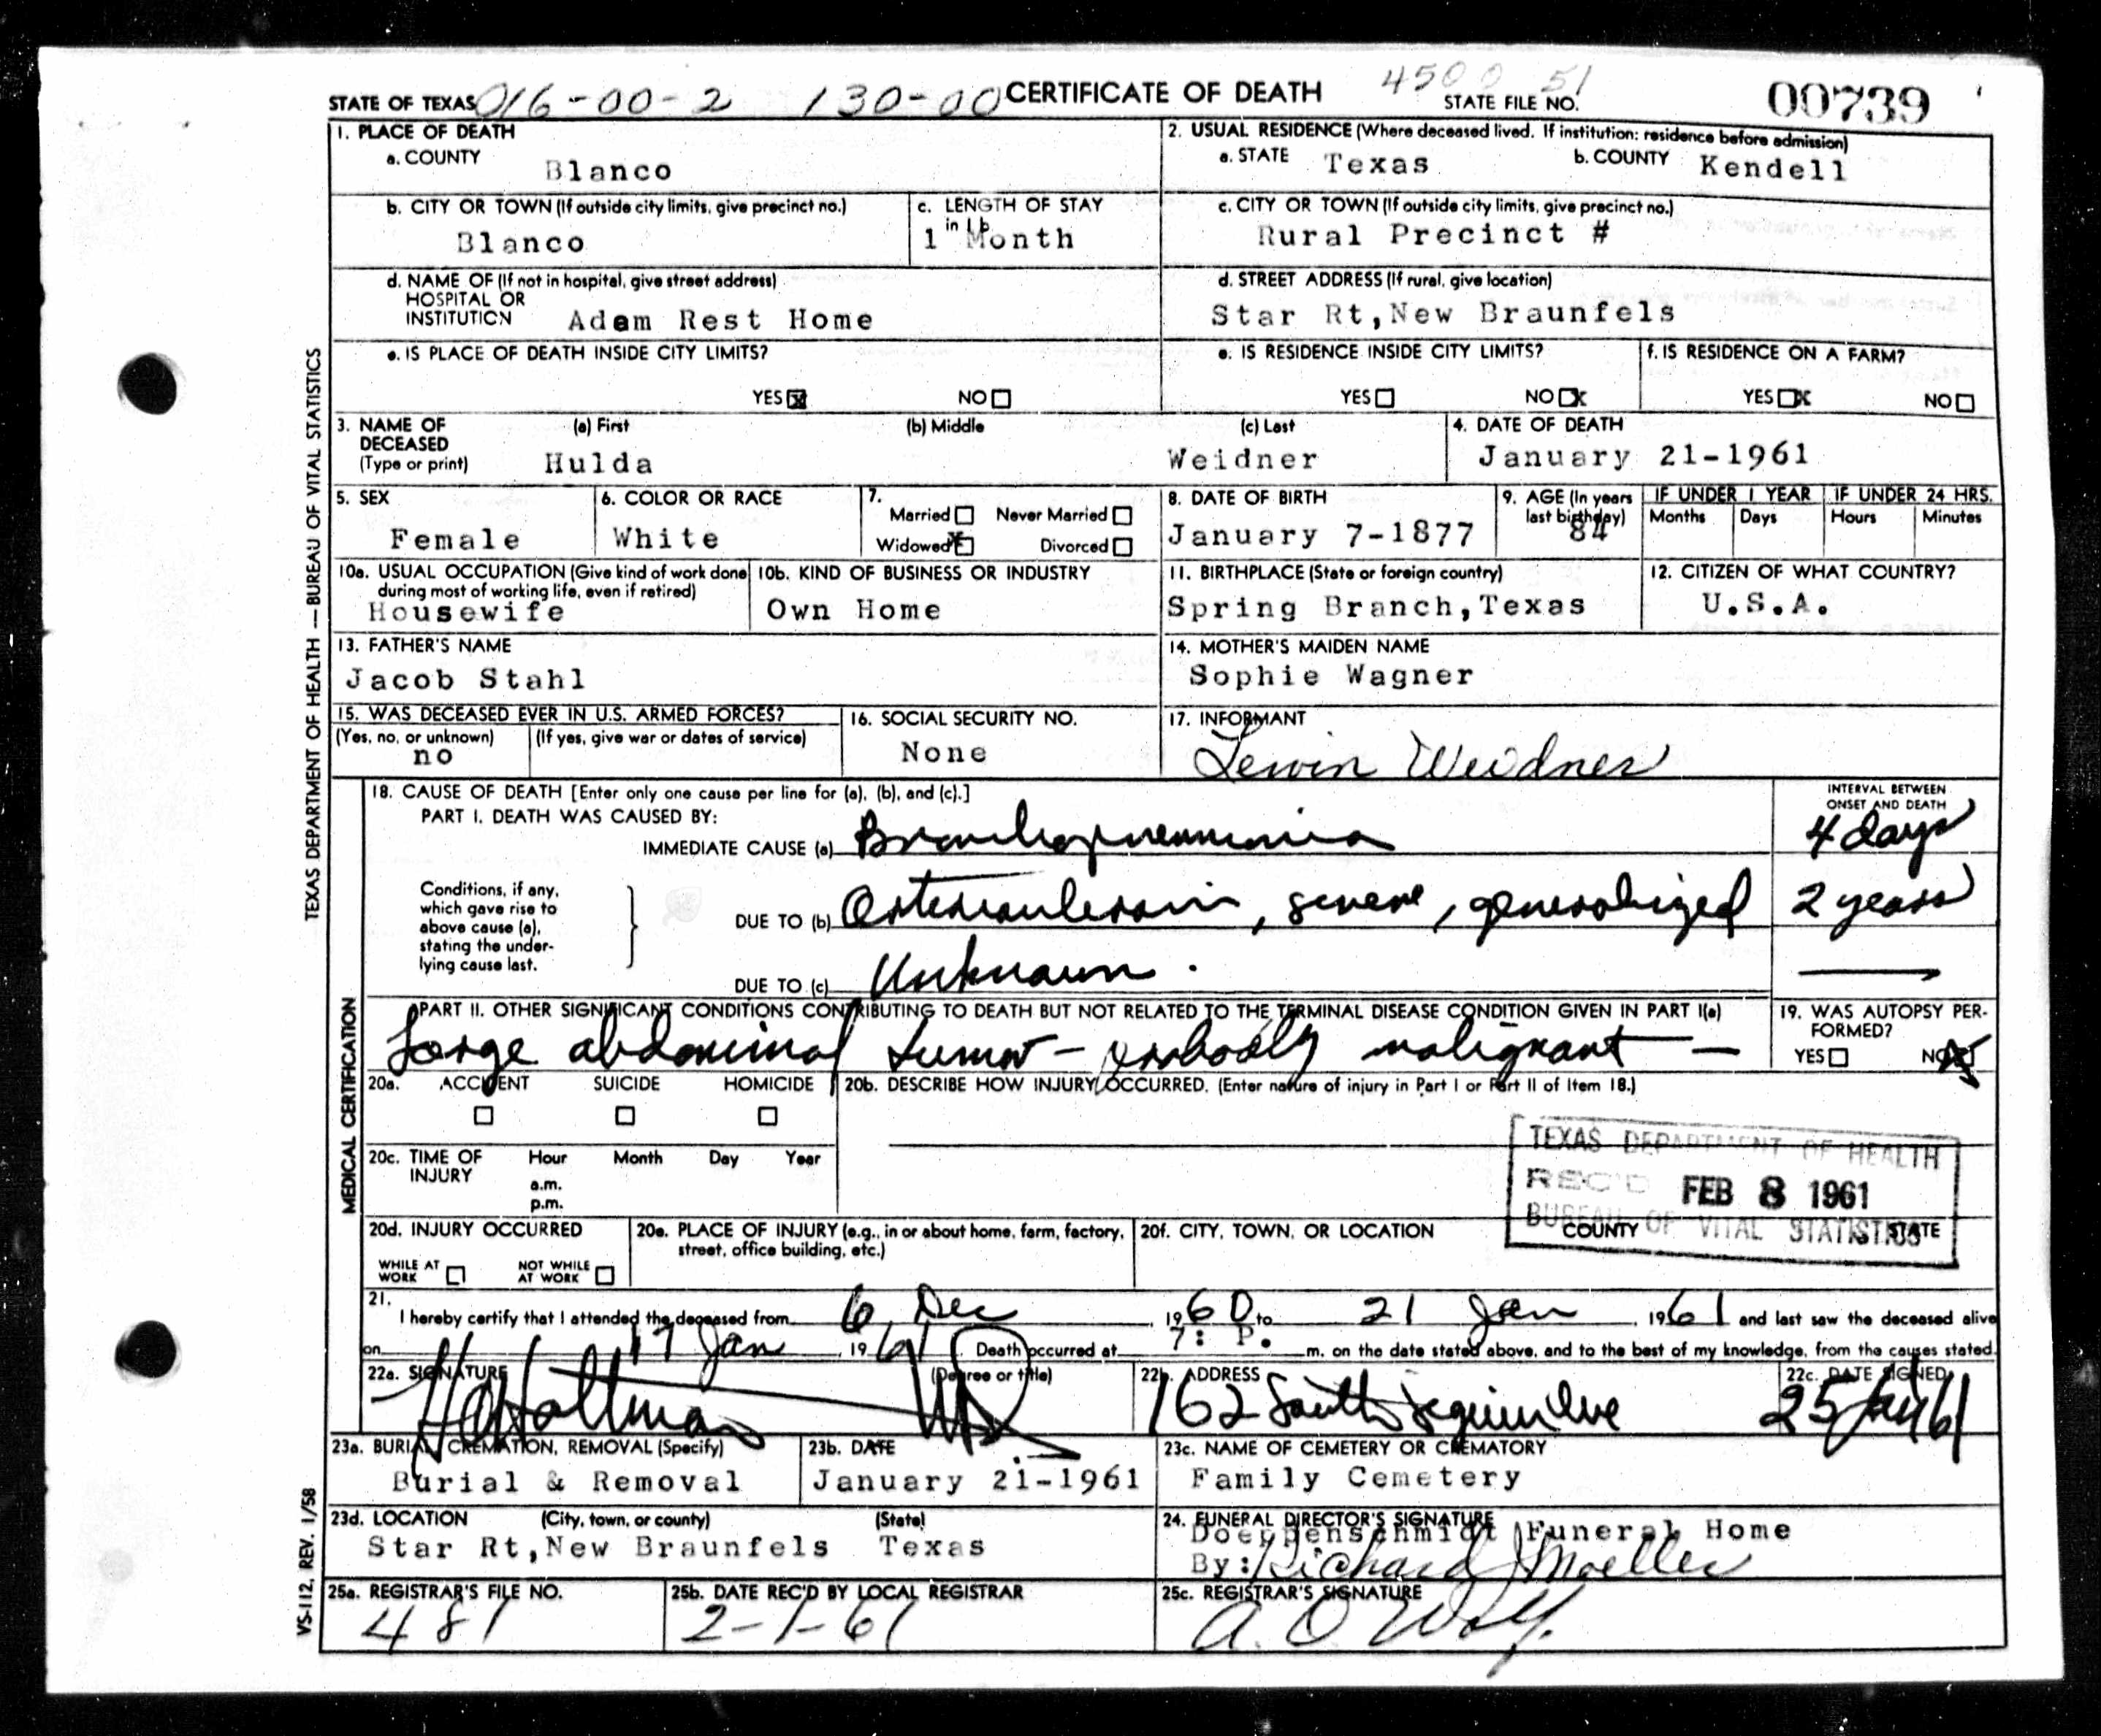 STATE OF TEXAS 016-00-2 130-00 CERTIFICATE OF DEATH 4500 51 STATE FILE NO. 00739
TEXAS DEPARTMENT OF HEALTH — BUREAU OF VITAL STATISTICS
1. PLACE OF DEATH
a. COUNTY Blanco
2. USUAL RESIDENCE (Where deceased lived. If institution: residence before admission)
a. STATE Texas b. COUNTY Kendell
b. CITY OR TOWN (If outside city limits, give precinct no.)
Blanco
c. LENGTH OF STAY in 1b
1 Month
c. CITY OR TOWN (If outside city limits, give precinct no.)
Rural Precinct #
d. NAME OF (If not in hospital, give street address)
HOSPITAL OR
INSTITUTION Adam Rest Home
d. STREET ADDRESS (If rural, give location)
Star Rt,New Braunfels
e. IS PLACE OF DEATH INSIDE CITY LIMITS?
YES X NO
e. IS RESIDENCE INSIDE CITY LIMITS?
YES NO X
f. IS RESIDENCE ON A FARM?
YES X NO
3. NAME OF DECEASED
(Type or print)
(a) First (b) Middle (c) Last
Hulda Weidner
4. DATE OF DEATH
January 21-1961
5. SEX
Female
6. COLOR OR RACE
White
7.
Married Never Married
Widowed X Divorced
8. DATE OF BIRTH
January 7-1877
9. AGE (In years
last birthday)
84
IF UNDER 1 YEAR IF UNDER 24 HRS.
Months Days Hours Minutes
10a. USUAL OCCUPATION (Give kind of work done
during most of working life, even if retired)
Housewife
10b. KIND OF BUSINESS OR INDUSTRY
Own Home
11. BIRTHPLACE (State or foreign country)
Spring Branch,Texas
12. CITIZEN OF WHAT COUNTRY?
U.S.A.
13. FATHER'S NAME
Jacob Stahl
14. MOTHER'S MAIDEN NAME
Sophie Wagner
15. WAS DECEASED EVER IN U.S. ARMED FORCES?
(Yes, no, or unknown) (If yes, give war or dates of service)
no
16. SOCIAL SECURITY NO.
None
17. INFORMANT
Lewin Weidner
MEDICAL CERTIFICATION
18. CAUSE OF DEATH [Enter only one cause per line for (a), (b), and (c).]
PART I. DEATH WAS CAUSED BY:
INTERVAL BETWEEN
ONSET AND DEATH
IMMEDIATE CAUSE (a) Bronchopneumonia 4 days
Conditions, if any,
which gave rise to
above cause (a),
stating the under-
lying cause last.
DUE TO (b) Arteriosclerosis, severe, generalized 2 years
DUE TO (c) Unknown.
PART II. OTHER SIGNIFICANT CONDITIONS CONTRIBUTING TO DEATH BUT NOT RELATED TO THE TERMINAL DISEASE CONDITION GIVEN IN PART I(a)
Large abdominal tumor - probably malignant —
19. WAS AUTOPSY PER-
FORMED?
YES NO X
20a. ACCIDENT SUICIDE HOMICIDE
20b. DESCRIBE HOW INJURY OCCURRED. (Enter nature of injury in Part I or Part II of Item 18.)
TEXAS DEPARTMENT OF HEALTH
REC'D FEB 8 1961
BUREAU OF VITAL STATISTICS
20c. TIME OF INJURY Hour Month Day Year
a.m.
p.m.
20d. INJURY OCCURRED
WHILE AT WORK NOT WHILE AT WORK
20e. PLACE OF INJURY (e.g., in or about home, farm, factory,
street, office building, etc.)
20f. CITY, TOWN, OR LOCATION COUNTY STATE
21.
I hereby certify that I attended the deceased from 6 Dec, 1960 to 21 Jan, 1961 and last saw the deceased alive
on 17 Jan, 1961. Death occurred at 7: P. m. on the date stated above, and to the best of my knowledge, from the causes stated.
22a. SIGNATURE (Degree or title)
Holtman MD
22b. ADDRESS
162 South Seguin Ave
22c. DATE SIGNED
25 Jan 61
23a. BURIAL, CREMATION, REMOVAL (Specify)
Burial & Removal
23b. DATE
January 21-1961
23c. NAME OF CEMETERY OR CREMATORY
Family Cemetery
23d. LOCATION (City, town, or county) (State)
Star Rt,New Braunfels Texas
24. FUNERAL DIRECTOR'S SIGNATURE
Doeppenschmidt Funeral Home
By: Richard Moeller
25a. REGISTRAR'S FILE NO.
481
25b. DATE REC'D BY LOCAL REGISTRAR
2-1-61
25c. REGISTRAR'S SIGNATURE
VS-112, REV. 1/58